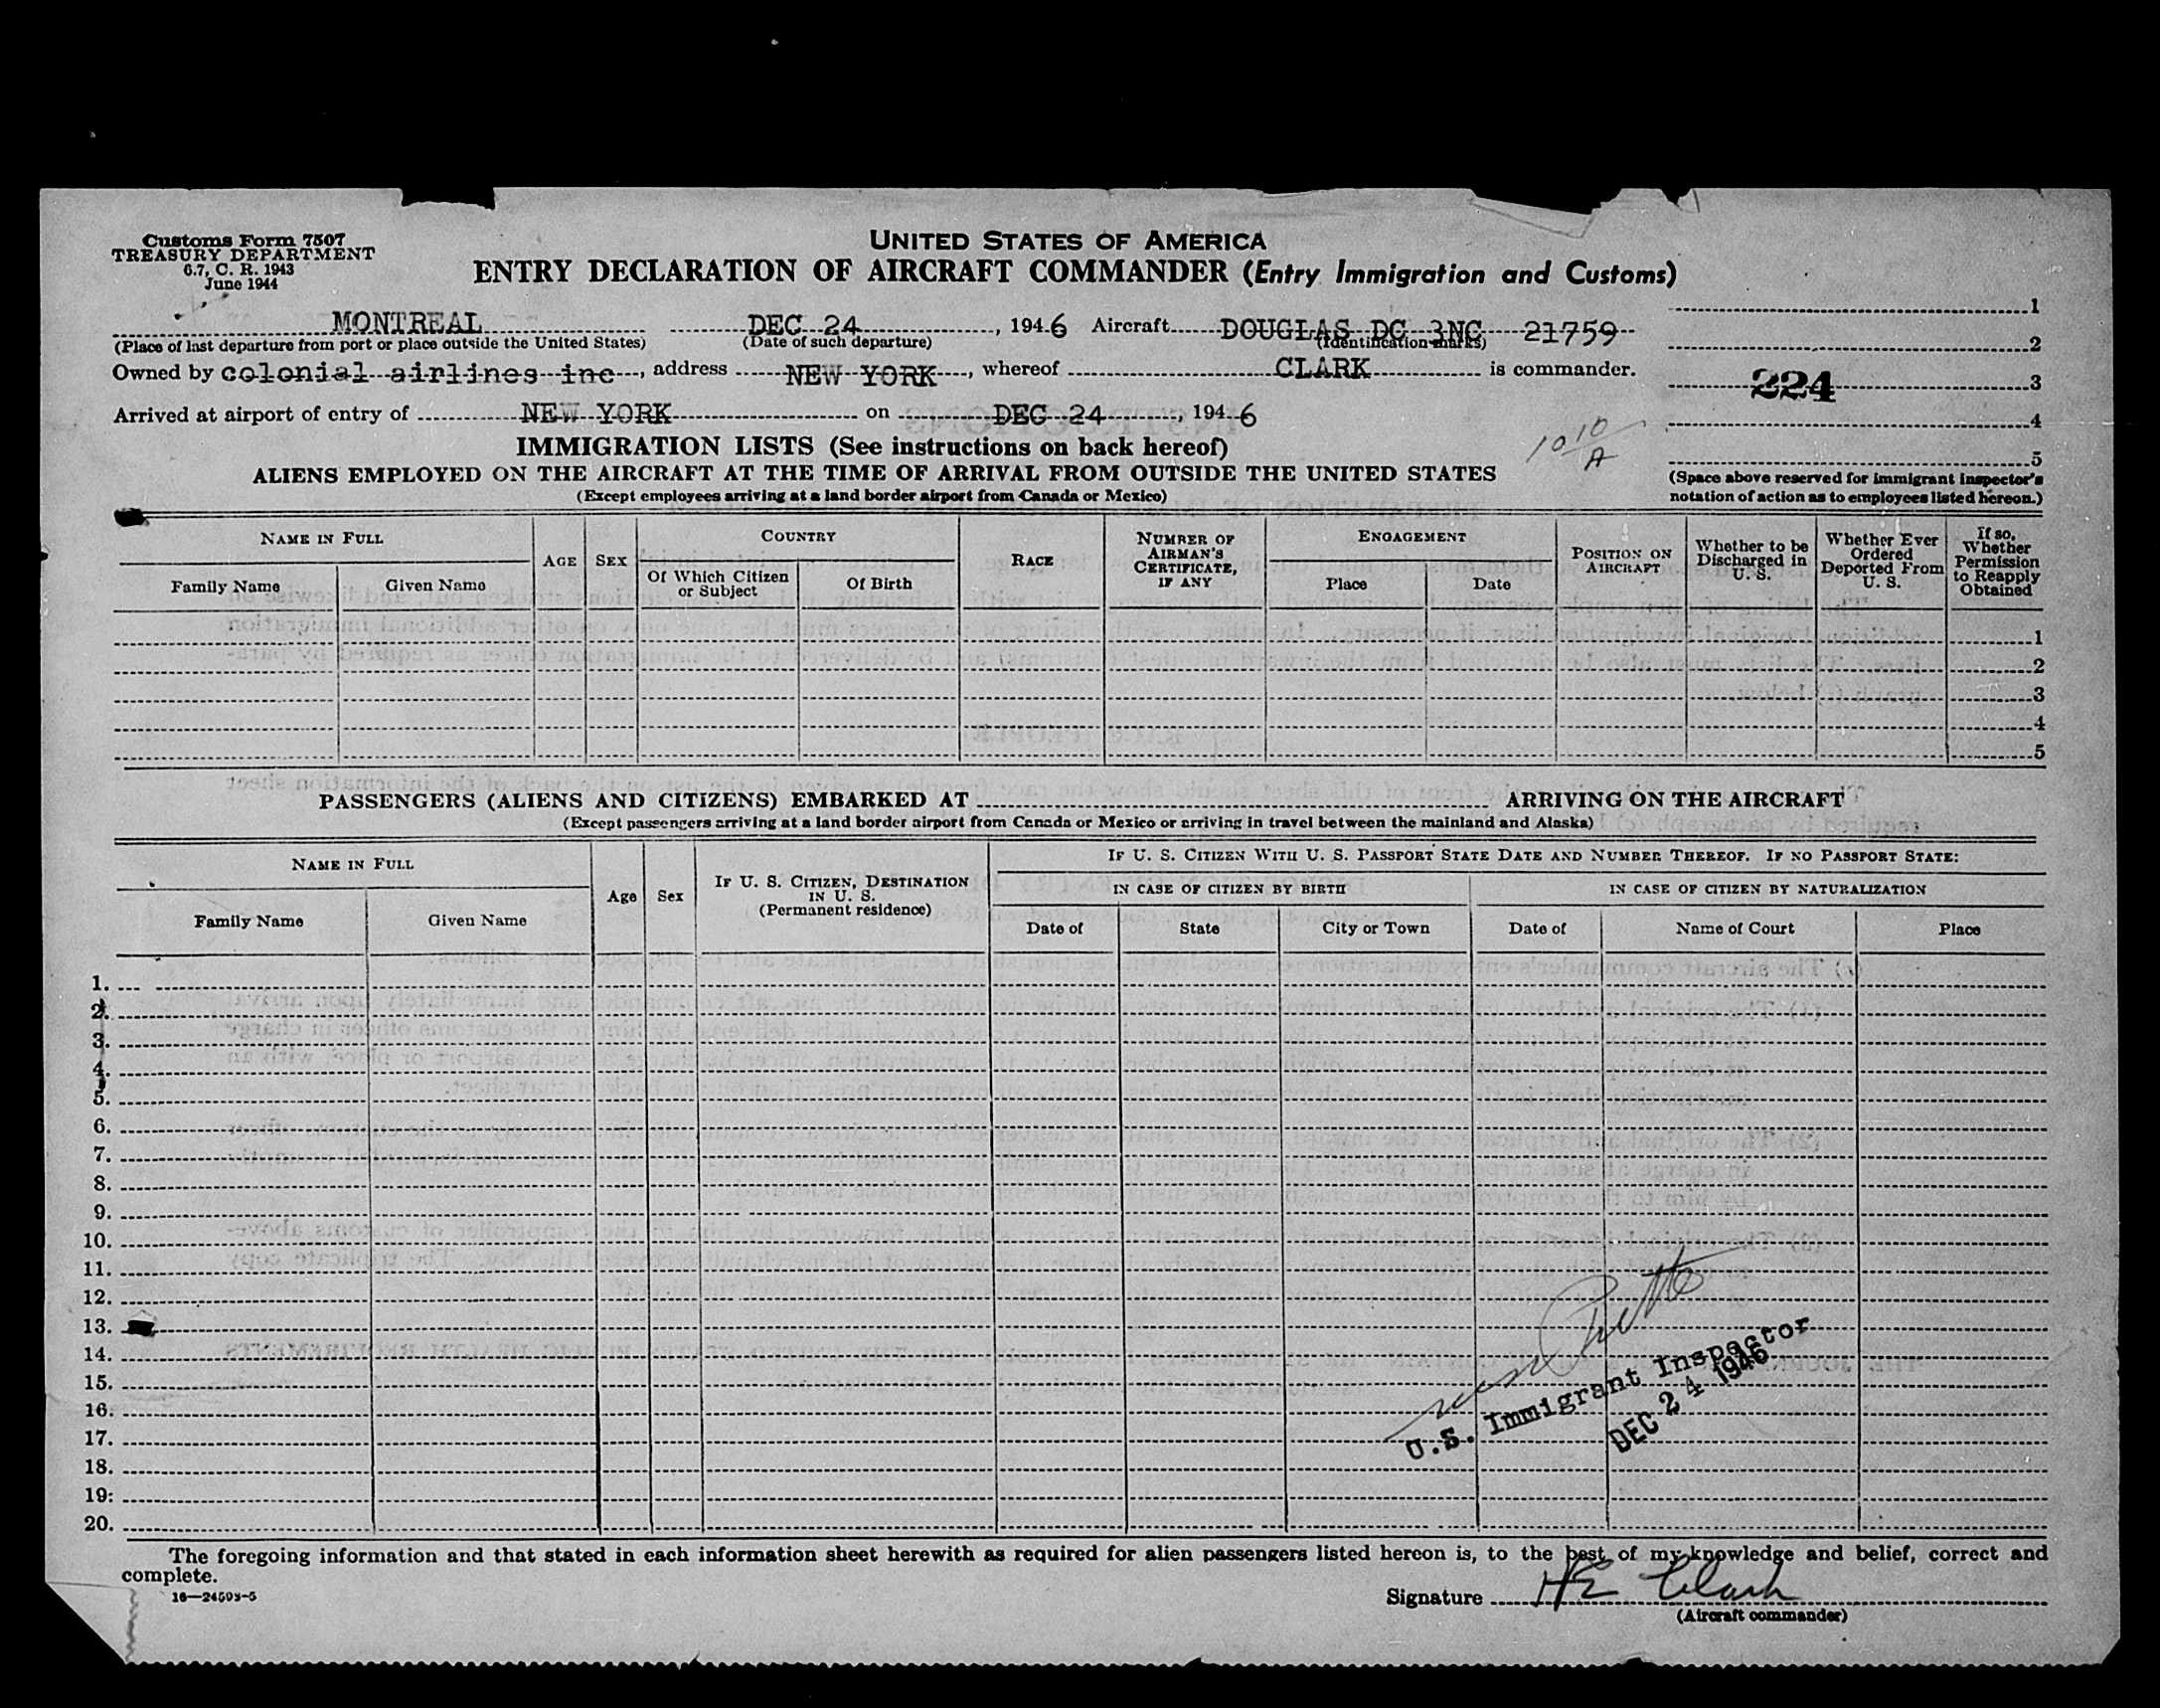 Customs Form 7507
TREASURY DEPARTMENT
6.7, C. R. 1943
June 1944
UNITED STATES OF AMERICA
ENTRY DECLARATION OF AIRCRAFT COMMANDER (Entry Immigration and Customs)
MONTREAL DEC 24, 1946 Aircraft DOUGLAS DC 3NC 21759
(Place of last departure from port or place outside the United States) (Date of such departure) (Identification marks)
Owned by colonial airlines inc, address NEW YORK, whereof CLARK is commander.
Arrived at airport of entry of NEW YORK on DEC 24, 1946
1
2
224 3
4
5
(Space above reserved for immigrant inspector's
notation of action as to employees listed hereon.)
10 10/A
IMMIGRATION LISTS (See instructions on back hereof)
ALIENS EMPLOYED ON THE AIRCRAFT AT THE TIME OF ARRIVAL FROM OUTSIDE THE UNITED STATES
(Except employees arriving at a land border airport from Canada or Mexico)
NAME IN FULL
Family Name
Given Name
AGE
SEX
COUNTRY
Of Which Citizen
or Subject
Of Birth
RACE
NUMBER OF
AIRMAN'S
CERTIFICATE,
IF ANY
ENGAGEMENT
Place
Date
POSITION ON
AIRCRAFT
Whether to be
Discharged in
U. S.
Whether Ever
Ordered
Deported From
U. S.
If so,
Whether
Permission
to Reapply
Obtained
1
2
3
4
5
PASSENGERS (ALIENS AND CITIZENS) EMBARKED AT ARRIVING ON THE AIRCRAFT
(Except passengers arriving at a land border airport from Canada or Mexico or arriving in travel between the mainland and Alaska)
NAME IN FULL
Family Name
Given Name
Age
Sex
IF U. S. CITIZEN, DESTINATION
IN U. S.
(Permanent residence)
IF U. S. CITIZEN WITH U. S. PASSPORT STATE DATE AND NUMBER THEREOF. IF NO PASSPORT STATE:
IN CASE OF CITIZEN BY BIRTH
IN CASE OF CITIZEN BY NATURALIZATION
Date of
State
City or Town
Date of
Name of Court
Place
1.
2.
3.
4.
5.
6.
7.
8.
9.
10.
11.
12.
13.
14.
15.
16.
17.
18.
19.
20.
U.S. Immigrant Inspector
DEC 24 1946
The foregoing information and that stated in each information sheet herewith as required for alien passengers listed hereon is, to the best of my knowledge and belief, correct and
complete.
16—24593-5
Signature HE Clark
(Aircraft commander)